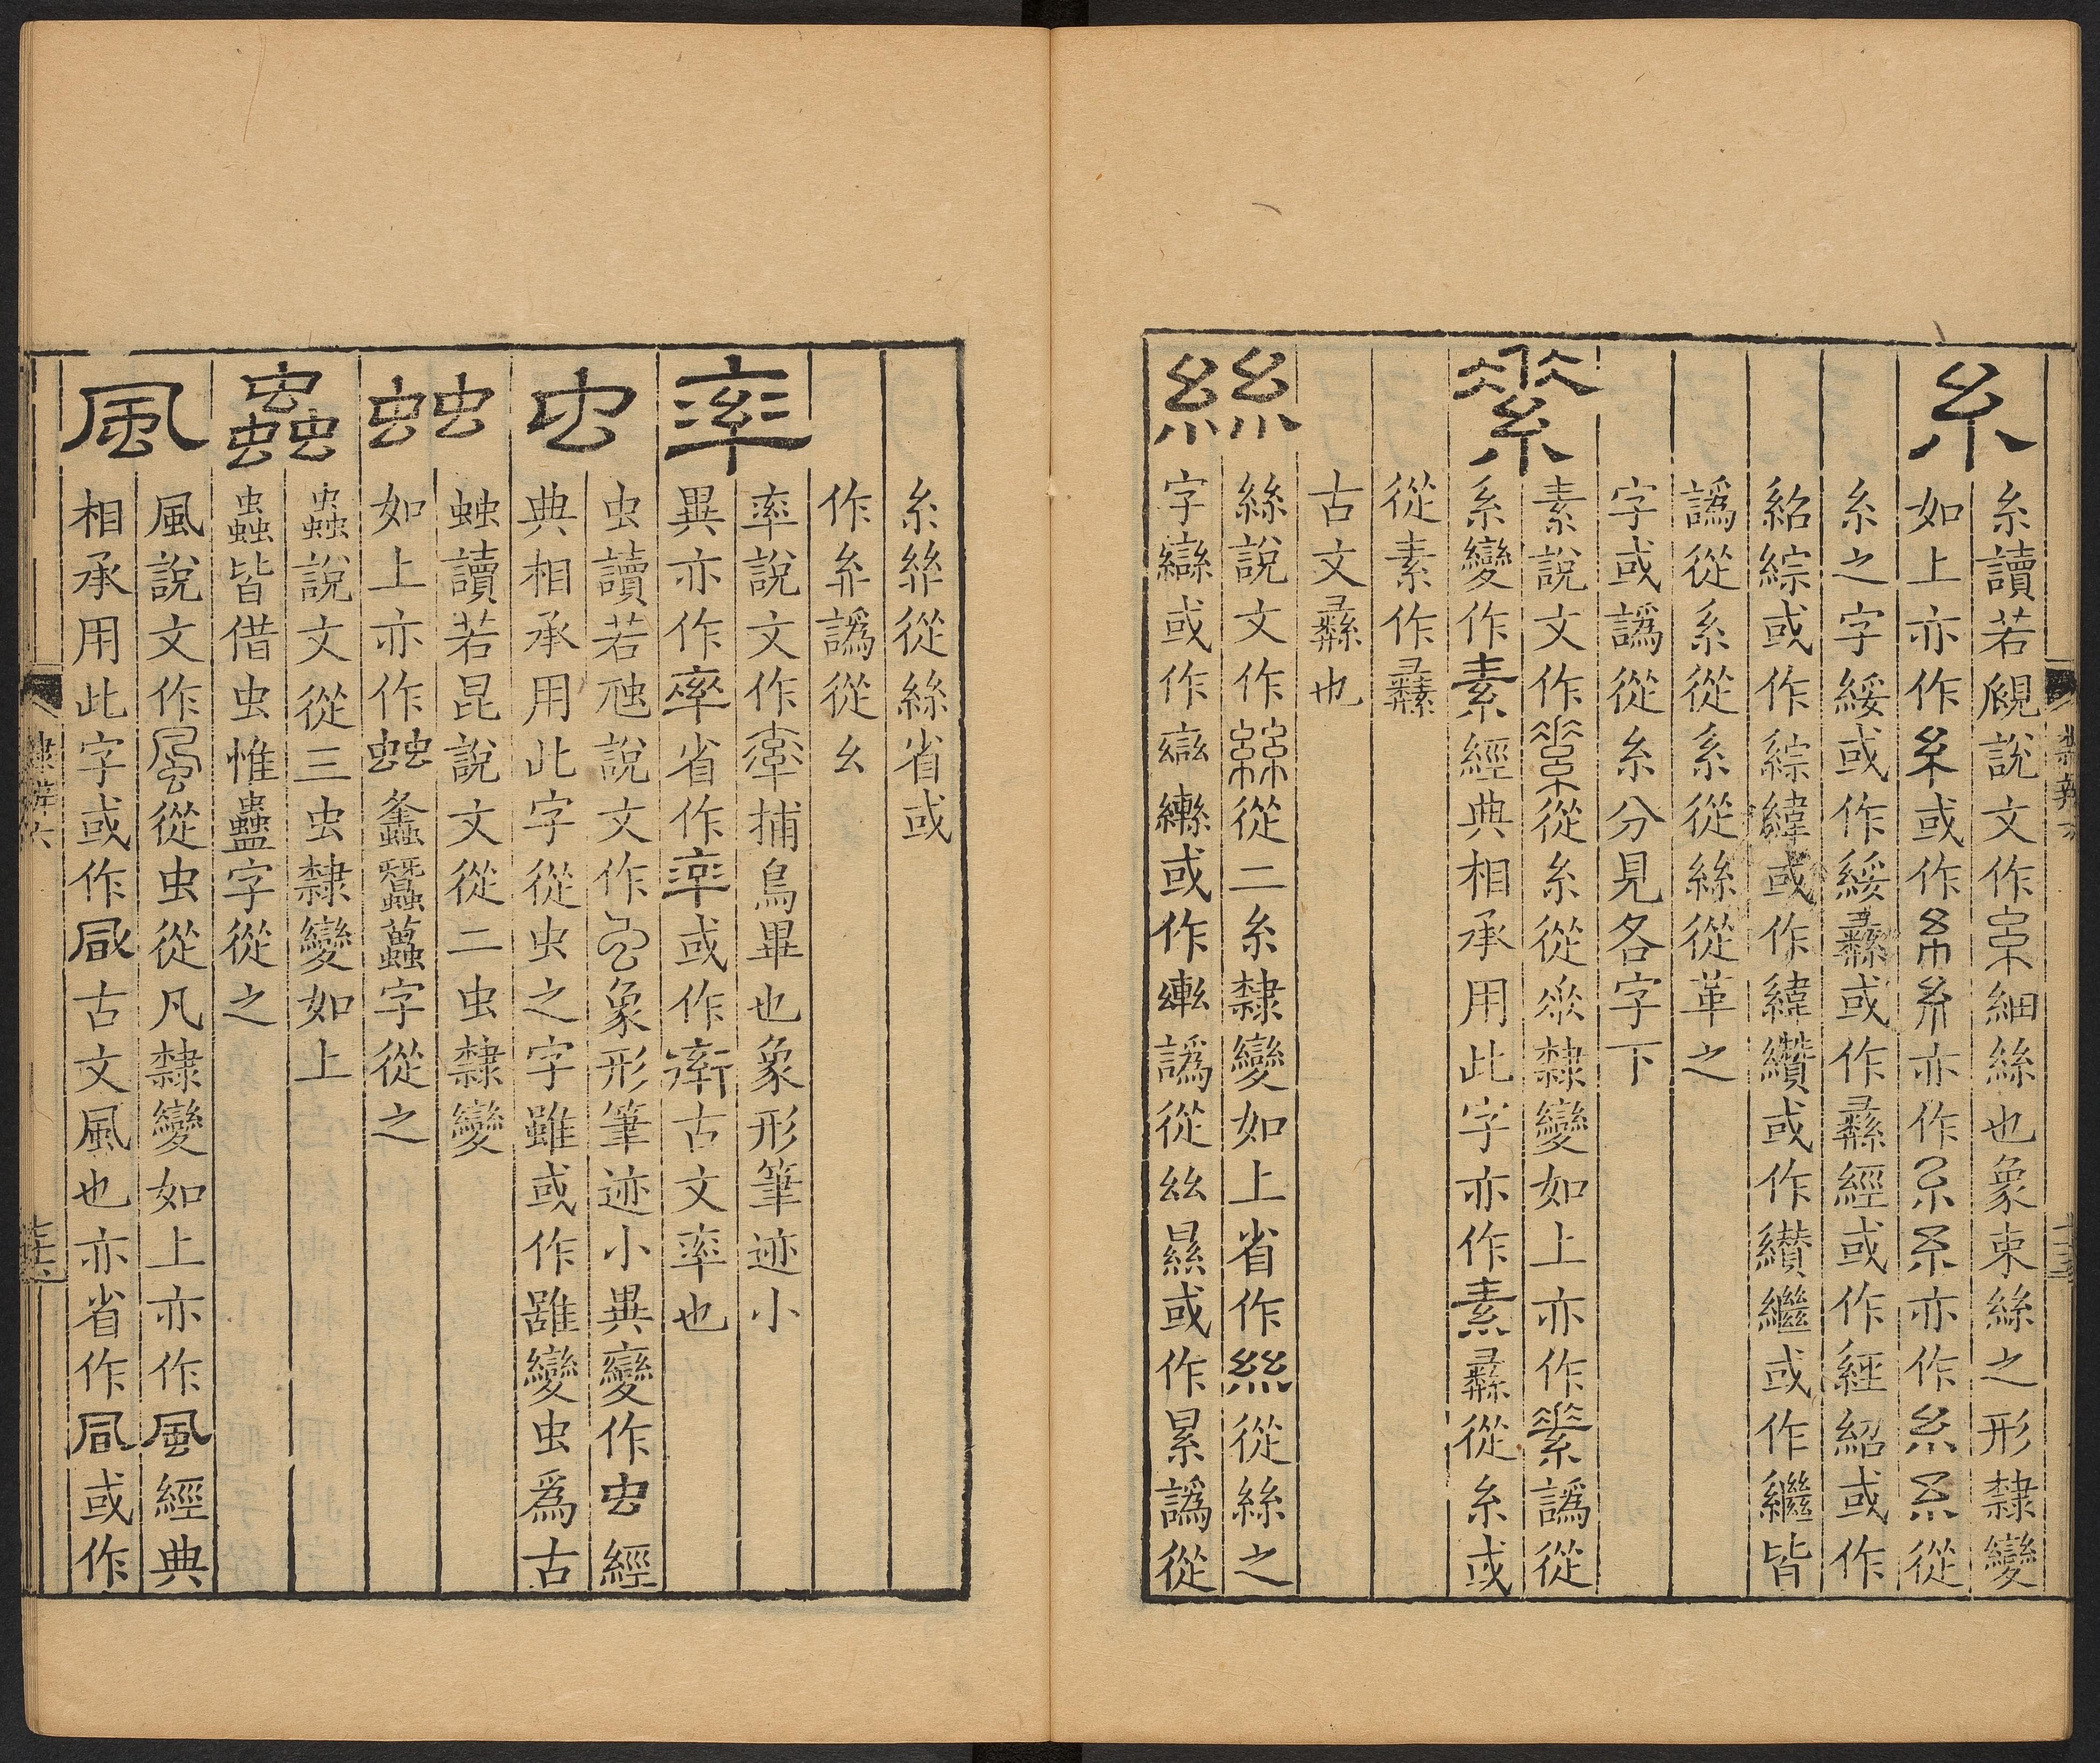 糸
糸讀若覛說文作糸細絲也象束絲之形隸變
如上亦作糸或作糸糸亦作糸糸亦作糸糸從
糸之字綏或作綏彞或作彞經或作經紹或作
紹綜或作綜緯或作緯纘或作纉繼或作繼皆
譌從糸從系從絲從革之
字或譌從糸分見各字下
素
素說文作素從糸從𠂹隸變如上亦作素譌從
系變作素經典相承用此字亦作素彞從糸或
從素作彞
古文彞也
絲
絲說文作絲從二糸隸變如上省作絲從絲之
字䜌或作䜌或作譌從𢆶㬎或作累譌從
糸絲從絲省或
作譌從幺
率
率說文作率捕鳥畢也象形筆迹小
異亦作率省作率或作𧗿古文率也
虫
虫讀若虺說文作虫象形筆迹小異變作虫經
典相承用此字從虫之字雖或作雖變虫爲古
䖵
䖵讀若昆說文從二虫隸變
如上亦作䖵螽蠶蠆字從之
蟲
蟲說文從三虫隸變如上
蟲皆借虫惟蠱字從之
風
風說文作風從虫從凡隸變如上亦作風經典
相承用此字或作凬古文風也亦省作凮或作
隸辨六